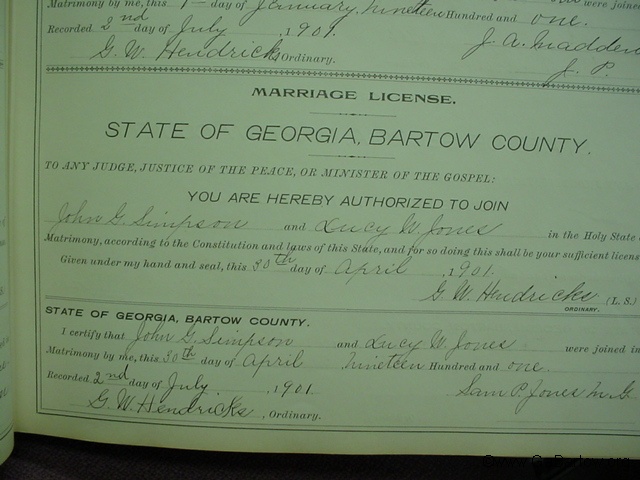 Matrimony by me, this 1st day of January, nineteen Hundred and one.
were joined
Recorded 2nd day of July, 1901.
J. A. Madden
G. W. Hendricks, Ordinary.
J. P.
MARRIAGE LICENSE.
STATE OF GEORGIA, BARTOW COUNTY.
TO ANY JUDGE, JUSTICE OF THE PEACE, OR MINISTER OF THE GOSPEL:
YOU ARE HEREBY AUTHORIZED TO JOIN
John G. Simpson and Lucy W. Jones in the Holy State
Matrimony, according to the Constitution and laws of this State, and for so doing this shall be your sufficient licens
Given under my hand and seal, this 30th day of April, 1901.
G. W. Hendricks (L. S.)
ORDINARY.
STATE OF GEORGIA, BARTOW COUNTY.
I certify that John G. Simpson and Lucy W. Jones were joined in
Matrimony by me, this 30th day of April nineteen Hundred and one.
Recorded 2nd day of July, 1901.
Sam P. Jones M. G.
G. W. Hendricks, Ordinary.